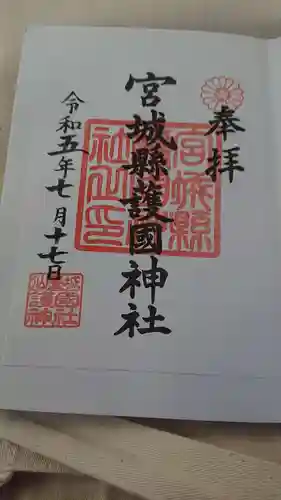 奉拝
宮城縣護國神社
令和五年七月十七日
宮城縣
護國神
社之印